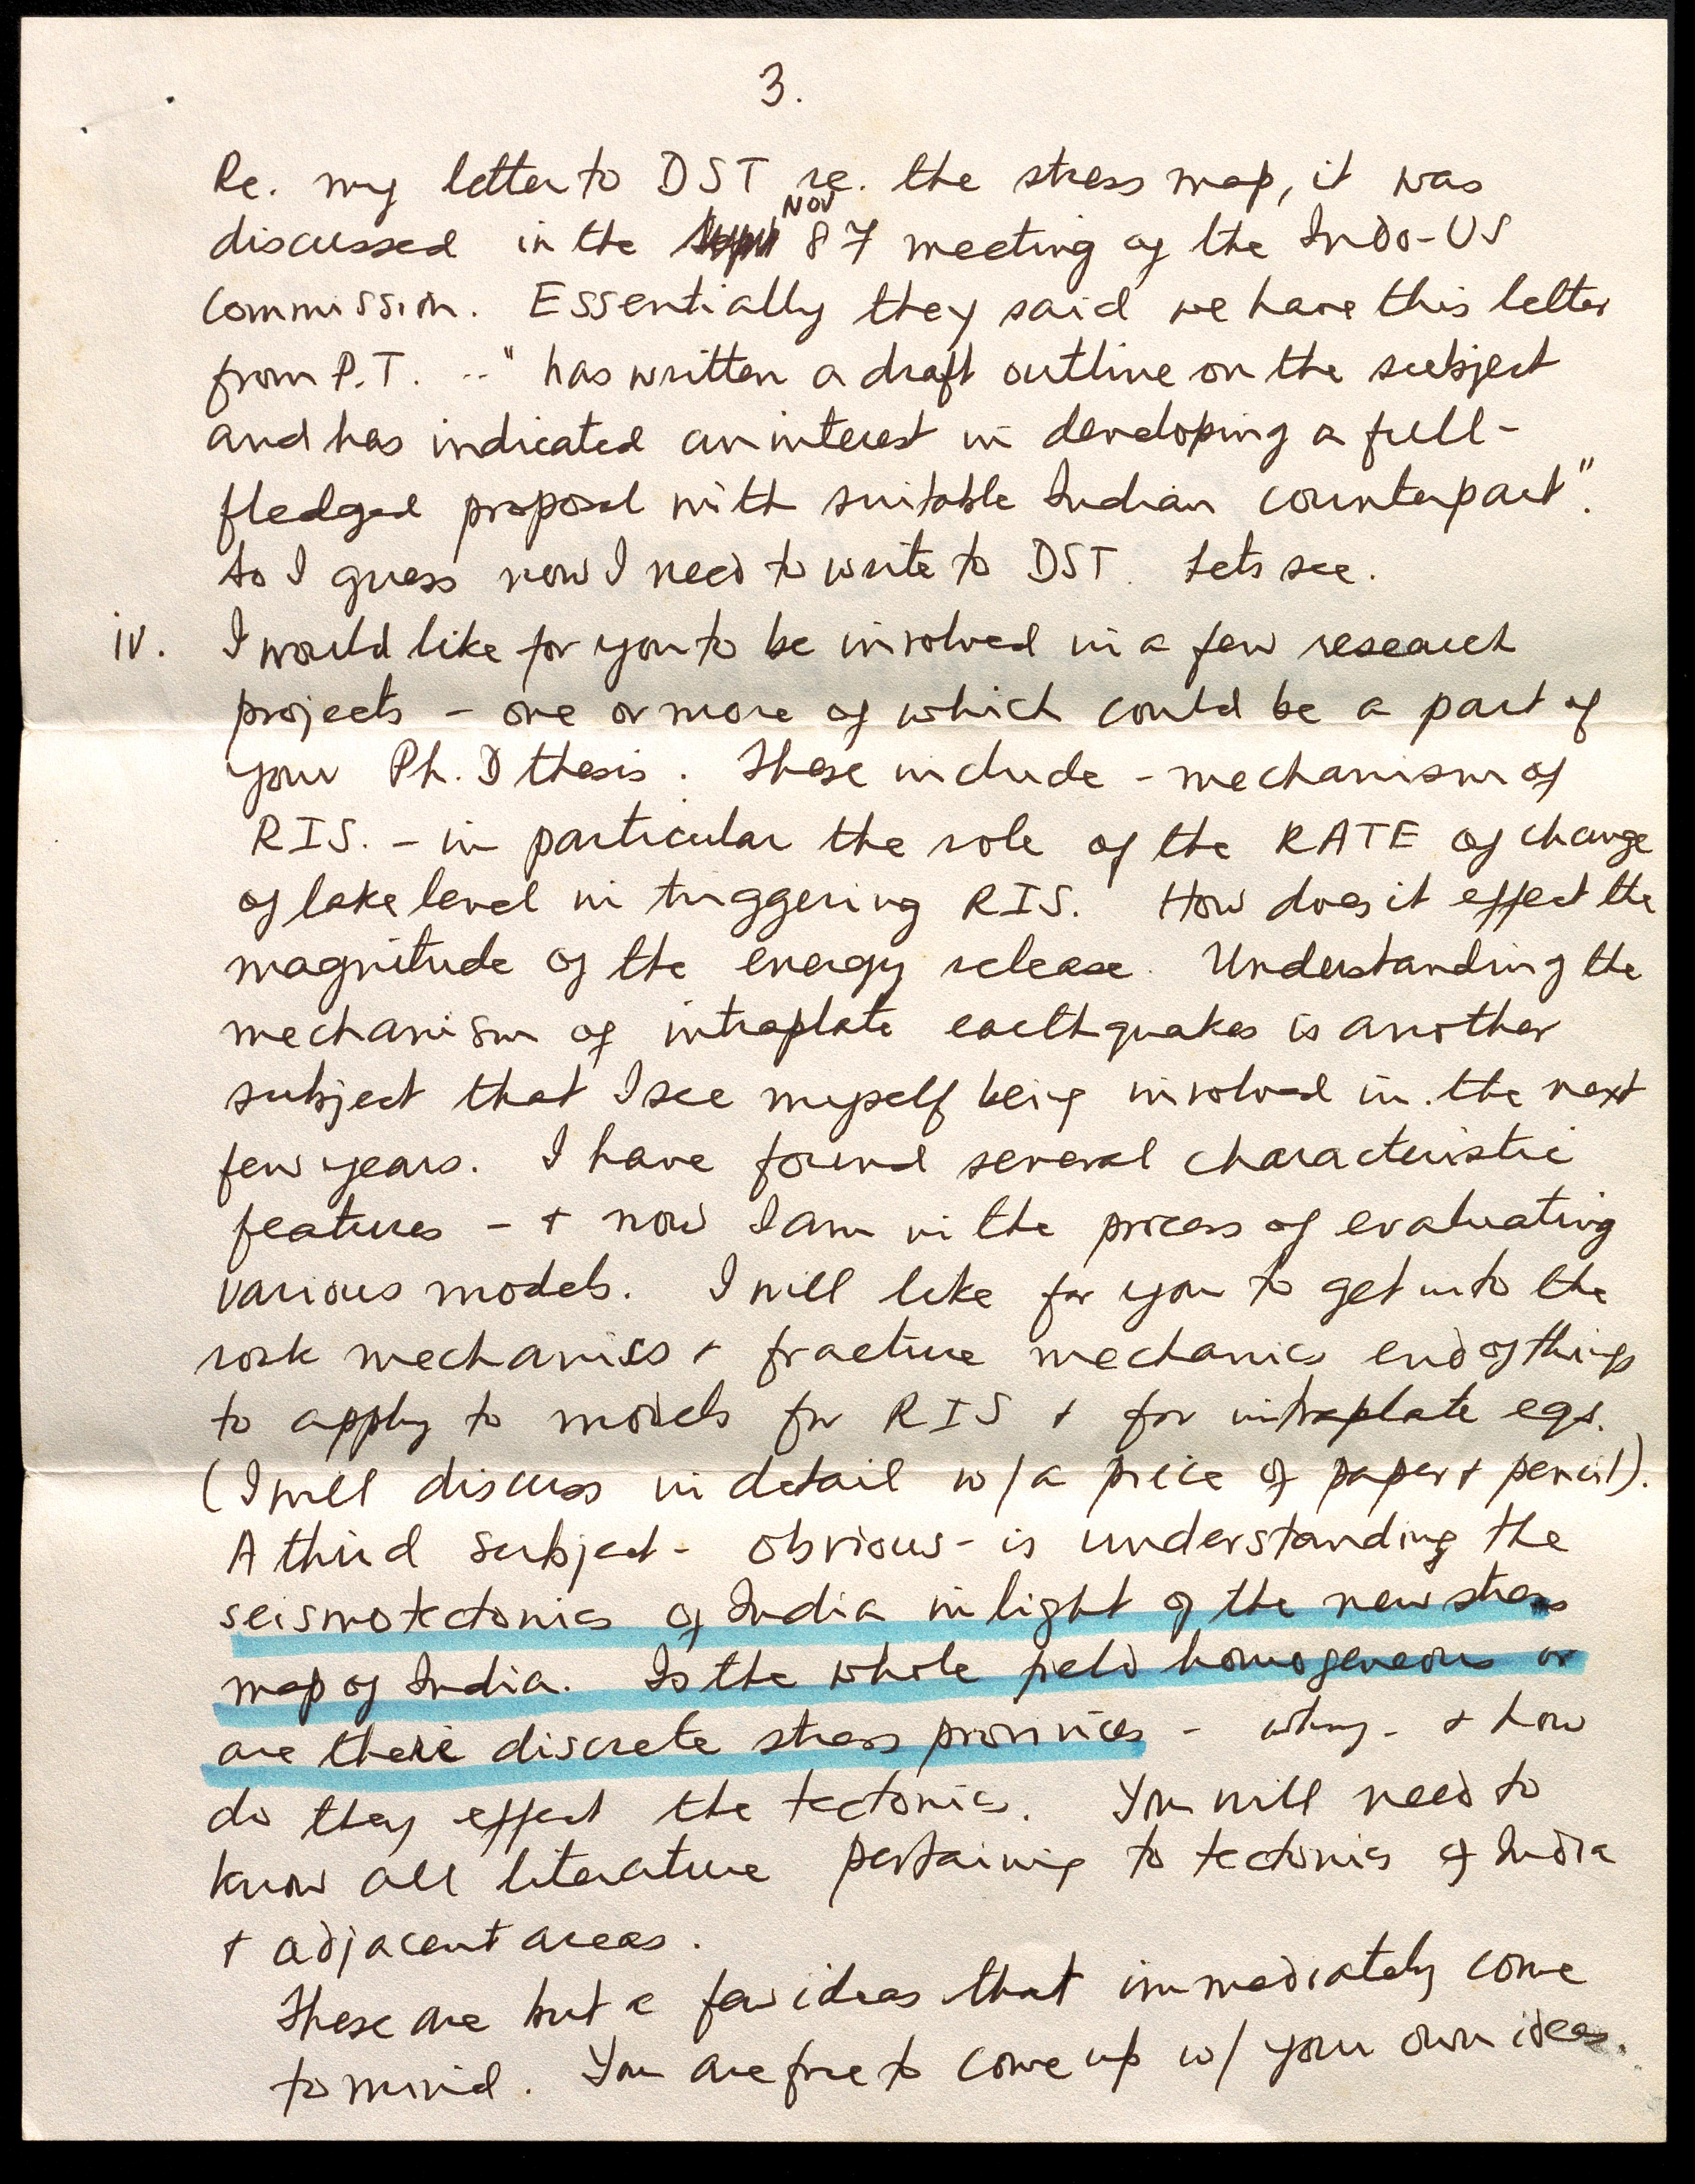 3.
Re. my letter to DST re. the stress map, it was
NOV
discussed in the 87 meeting of the Indo-US
Commission. Essentially they said we have this letter
from P.T. .." has written a draft outline on the subject
and has indicated an interest in developing a full-
fledged proposal with suitable Indian counterpart".
So I guess now I need to write to DST. Lets see.
iv. I would like for you to be involved in a few research
projects - one or more of which could be a part of
your Ph.D thesis. These include - mechanism of
RIS. - in particular the role of the RATE of change
of lake level in triggering RIS. How does it effect the
magnitude of the energy release. Understanding the
mechanism of intraplate earthquakes is another
subject that I see myself being involved in the next
few years. I have found several characteristic
features - + now I am in the process of evaluating
various models. I will like for you to get into the
rock mechanics + fracture mechanics end of things
to apply to models for RIS + for intraplate eqs.
(I will discuss in detail w/ a piece of paper + pencil).
A third subject - obvious - is understanding the
seismotectonics of India in light of the new stress
map of India. Is the whole field homogeneous or
are there discrete stress provinces - why - + how
do they effect the tectonics. You will need to
know all literature pertaining to tectonics of India
+ adjacent areas.
These are but a few ideas that immediately come
to mind. You are free to come up w/ your own ideas.